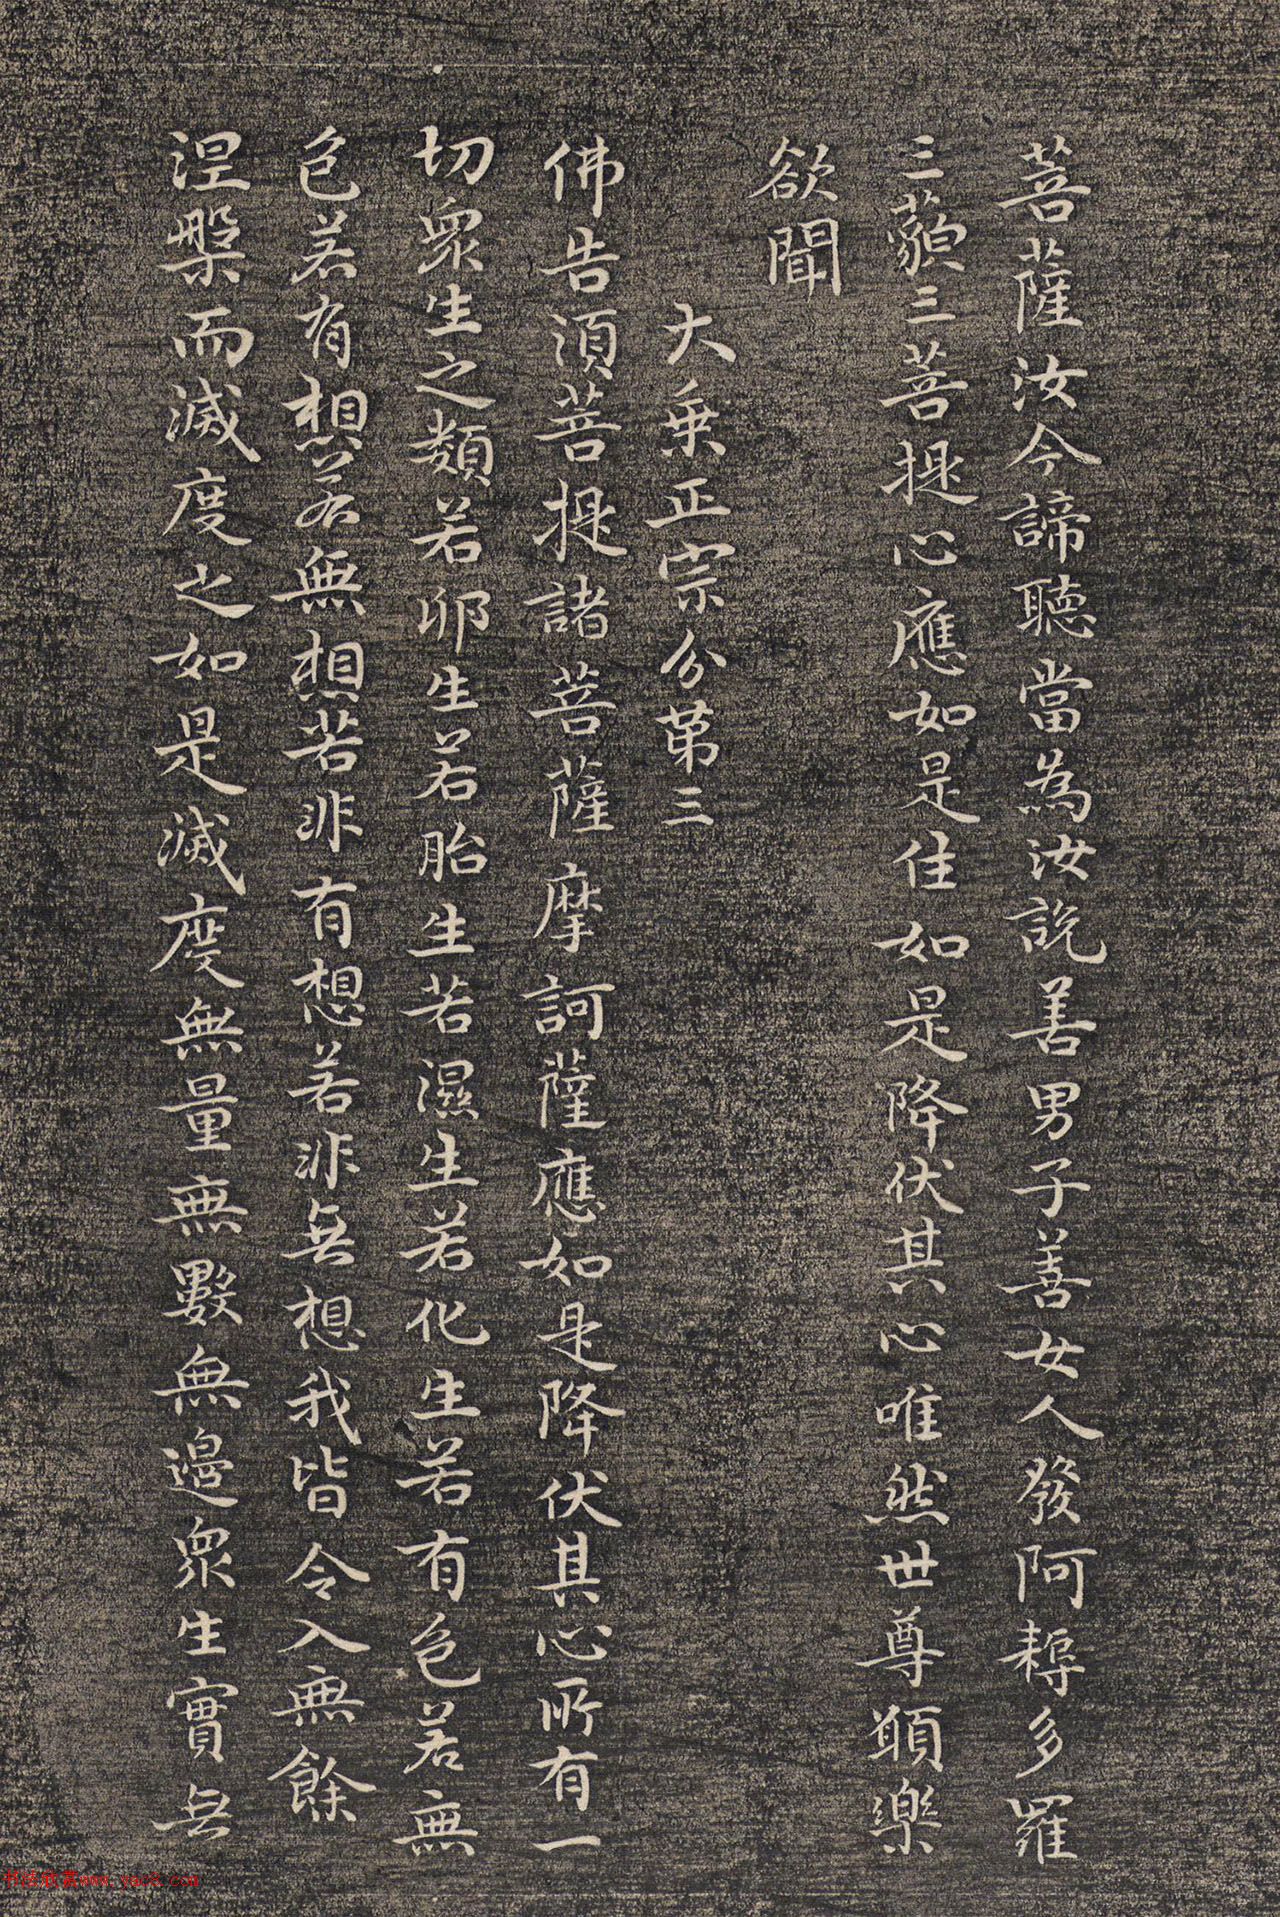 菩薩汝今諦聽當為汝說善男子善女人發阿耨多羅
三藐三菩提心應如是住如是降伏其心唯然世尊願樂
欲聞
大乘正宗分第三
佛告須菩提諸菩薩摩訶薩應如是降伏其心所有一
切眾生之類若卵生若胎生若濕生若化生若有色若無
色若有想若無想若非有想若非無想我皆令入無餘
涅槃而滅度之如是滅度無量無數無邊眾生實无